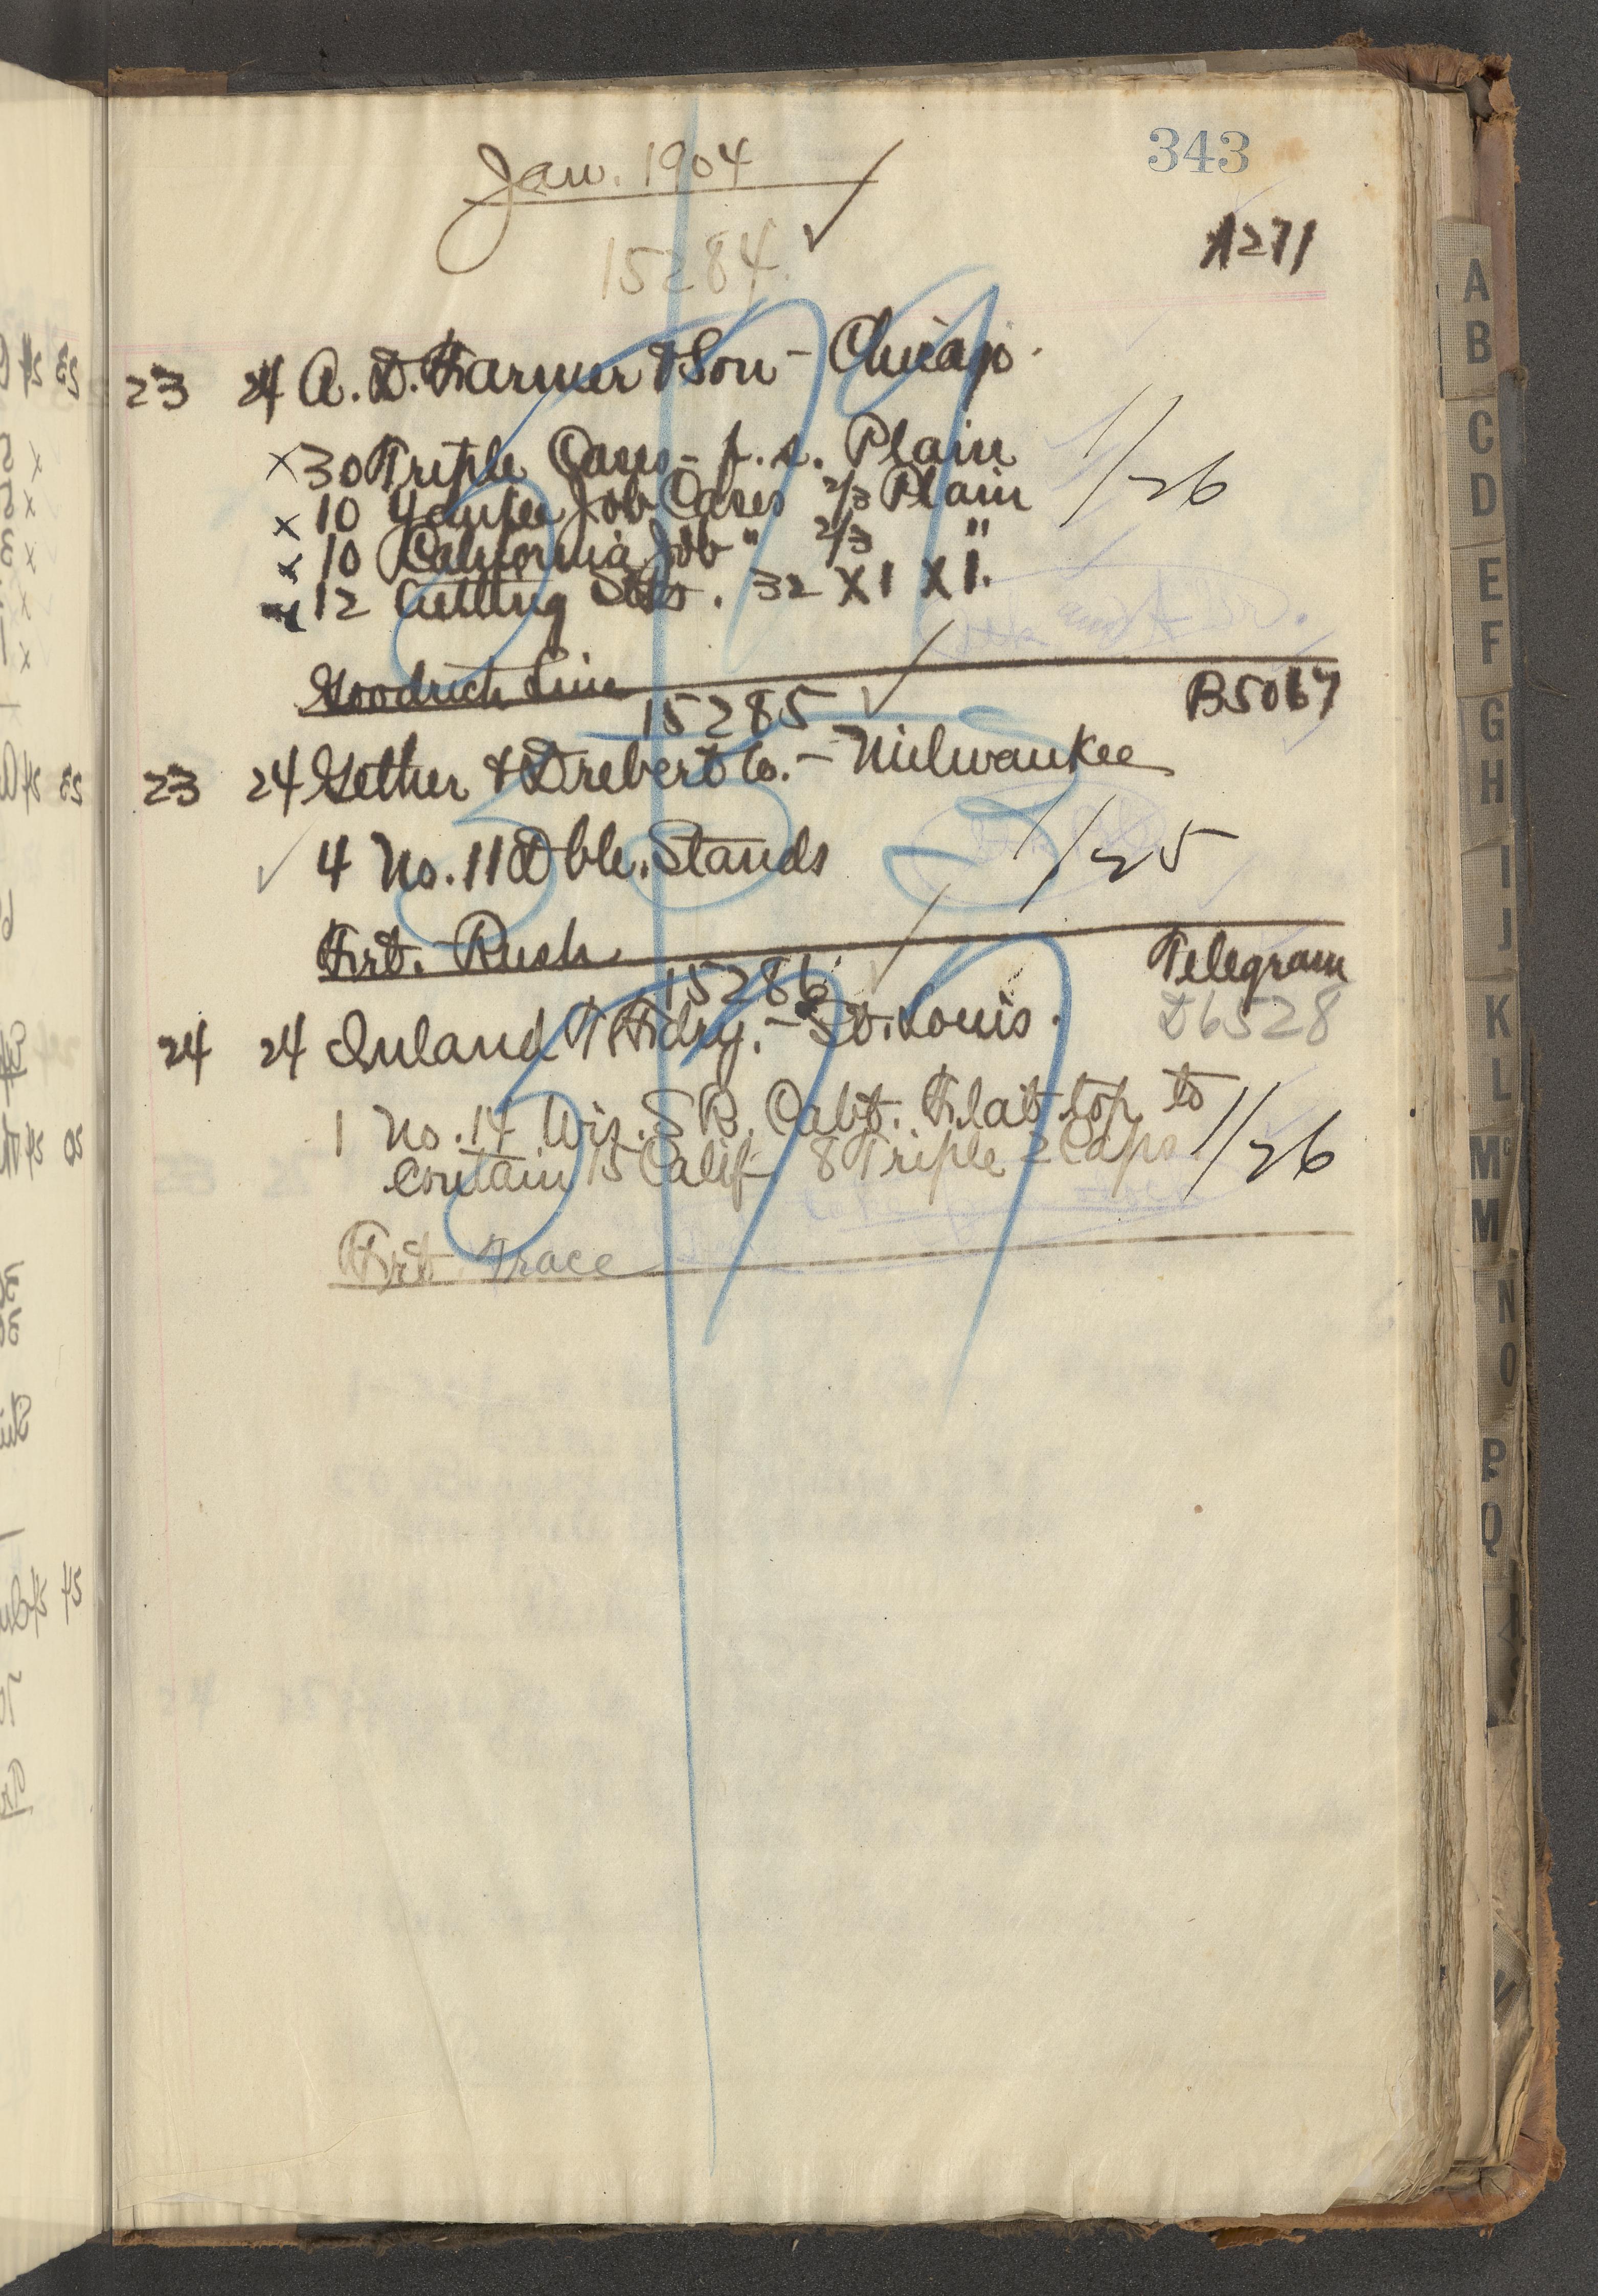 343
Jan. 1904
15284
A271
23 24 A. D. Farmer & Son - Chicago.
x 30 Triple Cases - f. s. Plain
x 10 Yankee Job Cases 2/3 Plain
x 10 California Job " 2/3 "
x 12 Cutting Stks. 32 X 1 X 1.
1/26
Goodrich Line
15285
B5067
23 24 Gether & Drebert Co. - Milwaukee
4 No. 11 Dble. Stands
1/25
Frt. Rush
15286
Telegram
24 24 Inland T. Fdry. - St. Louis.
D6528
1 No. 14 Wis. S R. Cabt. Flat top to
contain 15 Calif 8 Triple 2 Caps
1/26
Frt. Trace
A
B
C
D
E
F
G
H
I
J
K
L
Mc
M
N
O
P
Q